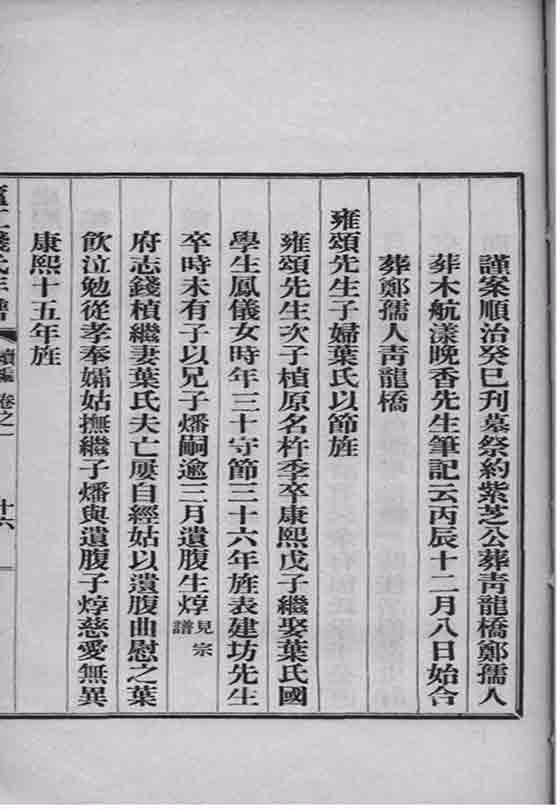 謹案順治癸巳刊墓祭約紫芝公葬靑龍橋鄭孺人
葬木航漾晚香先生筆記云丙辰十二月八日始合
葬鄭孺人靑龍橋
雍頌先生子婦葉氏以節旌
雍頌先生次子楨原名杵季卒康熙戊子繼娶葉氏國
學生鳳儀女時年三十守節三十六年旌表建坊先生
卒時未有子以兄子燔嗣逾三月遺腹生焞見宗譜
府志錢楨繼妻葉氏夫亡屢自經姑以遺腹曲慰之葉
飮泣勉從孝奉孀姑撫繼子燔與遺腹子焞慈愛無異
康熙十五年旌
廬江錢氏年譜 續編 卷之一 十六